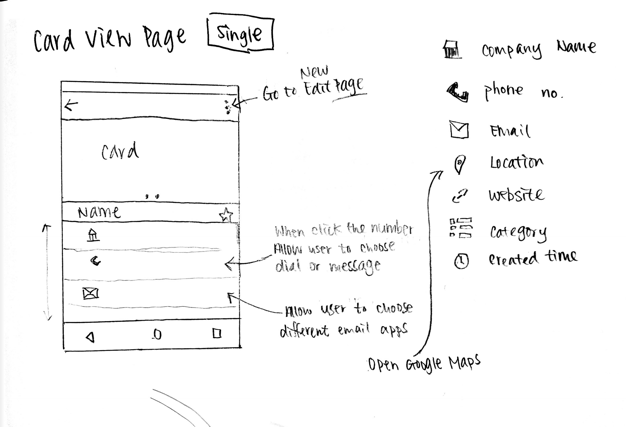 Card View Page
Single
New
Go to Edit Page
Card
Name
When click the number
Allow user to choose
dial or message
Allow user to choose
different email apps
Open Google Maps
Company Name
phone no.
Email
Location
Website
Category
Created time